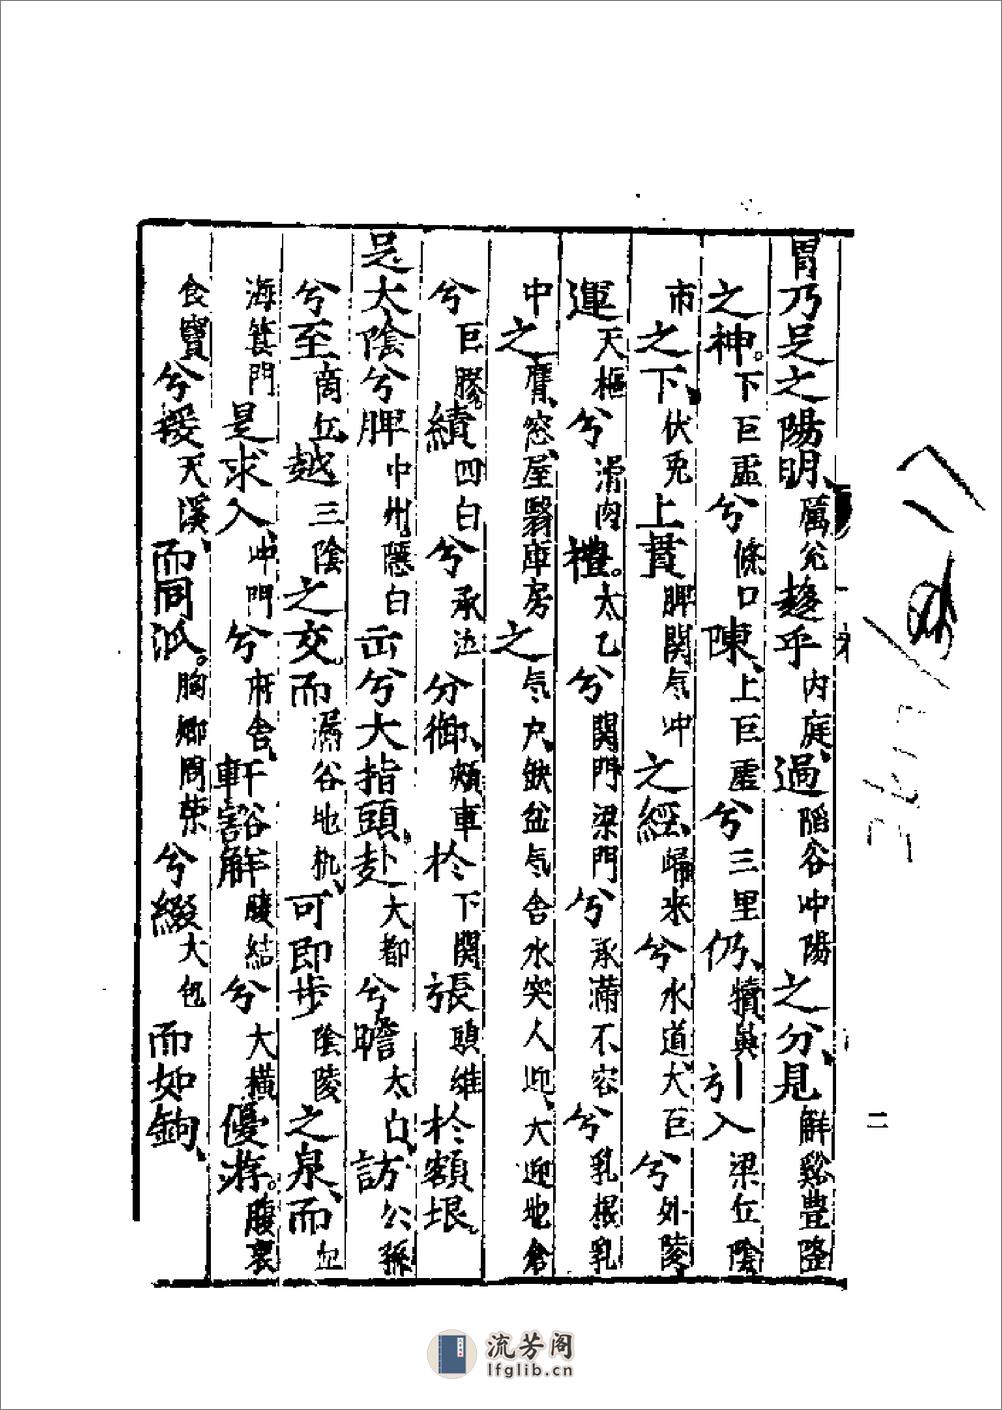 胃乃足之陽明、厲兊趍乎內庭、過陷谷冲陽之分、見解谿豊隆
之神。下巨虛兮條口陳、上巨虛兮三里仍、犢鼻引入梁丘陰
市之下、伏兎上貫脾関气冲之經、歸来兮水道、大巨兮外陵、
運天樞兮滑肉禮。太乙兮関門梁門兮承滿不容兮乳根乳
中之膺窓、屋翳庫房之气户、缺盆气舍水突人迎、大迎地倉
兮巨膠、續四白兮承泣分御、頰車於下関張頭維於額垠。
足太陰兮脾中州、隱白出兮大指頭。赴大都兮瞻太白、訪公孫
兮至商丘、越三陰之交、而漏谷地机、可即步陰陵之泉、而血
海箕門是求入、冲門兮府舍、軒豁解腹結兮大橫優游。腹哀
食竇兮接天溪、而同派。胸鄉周荣兮綴大包而如鉤、
二
流芳阁
lfglib.cn